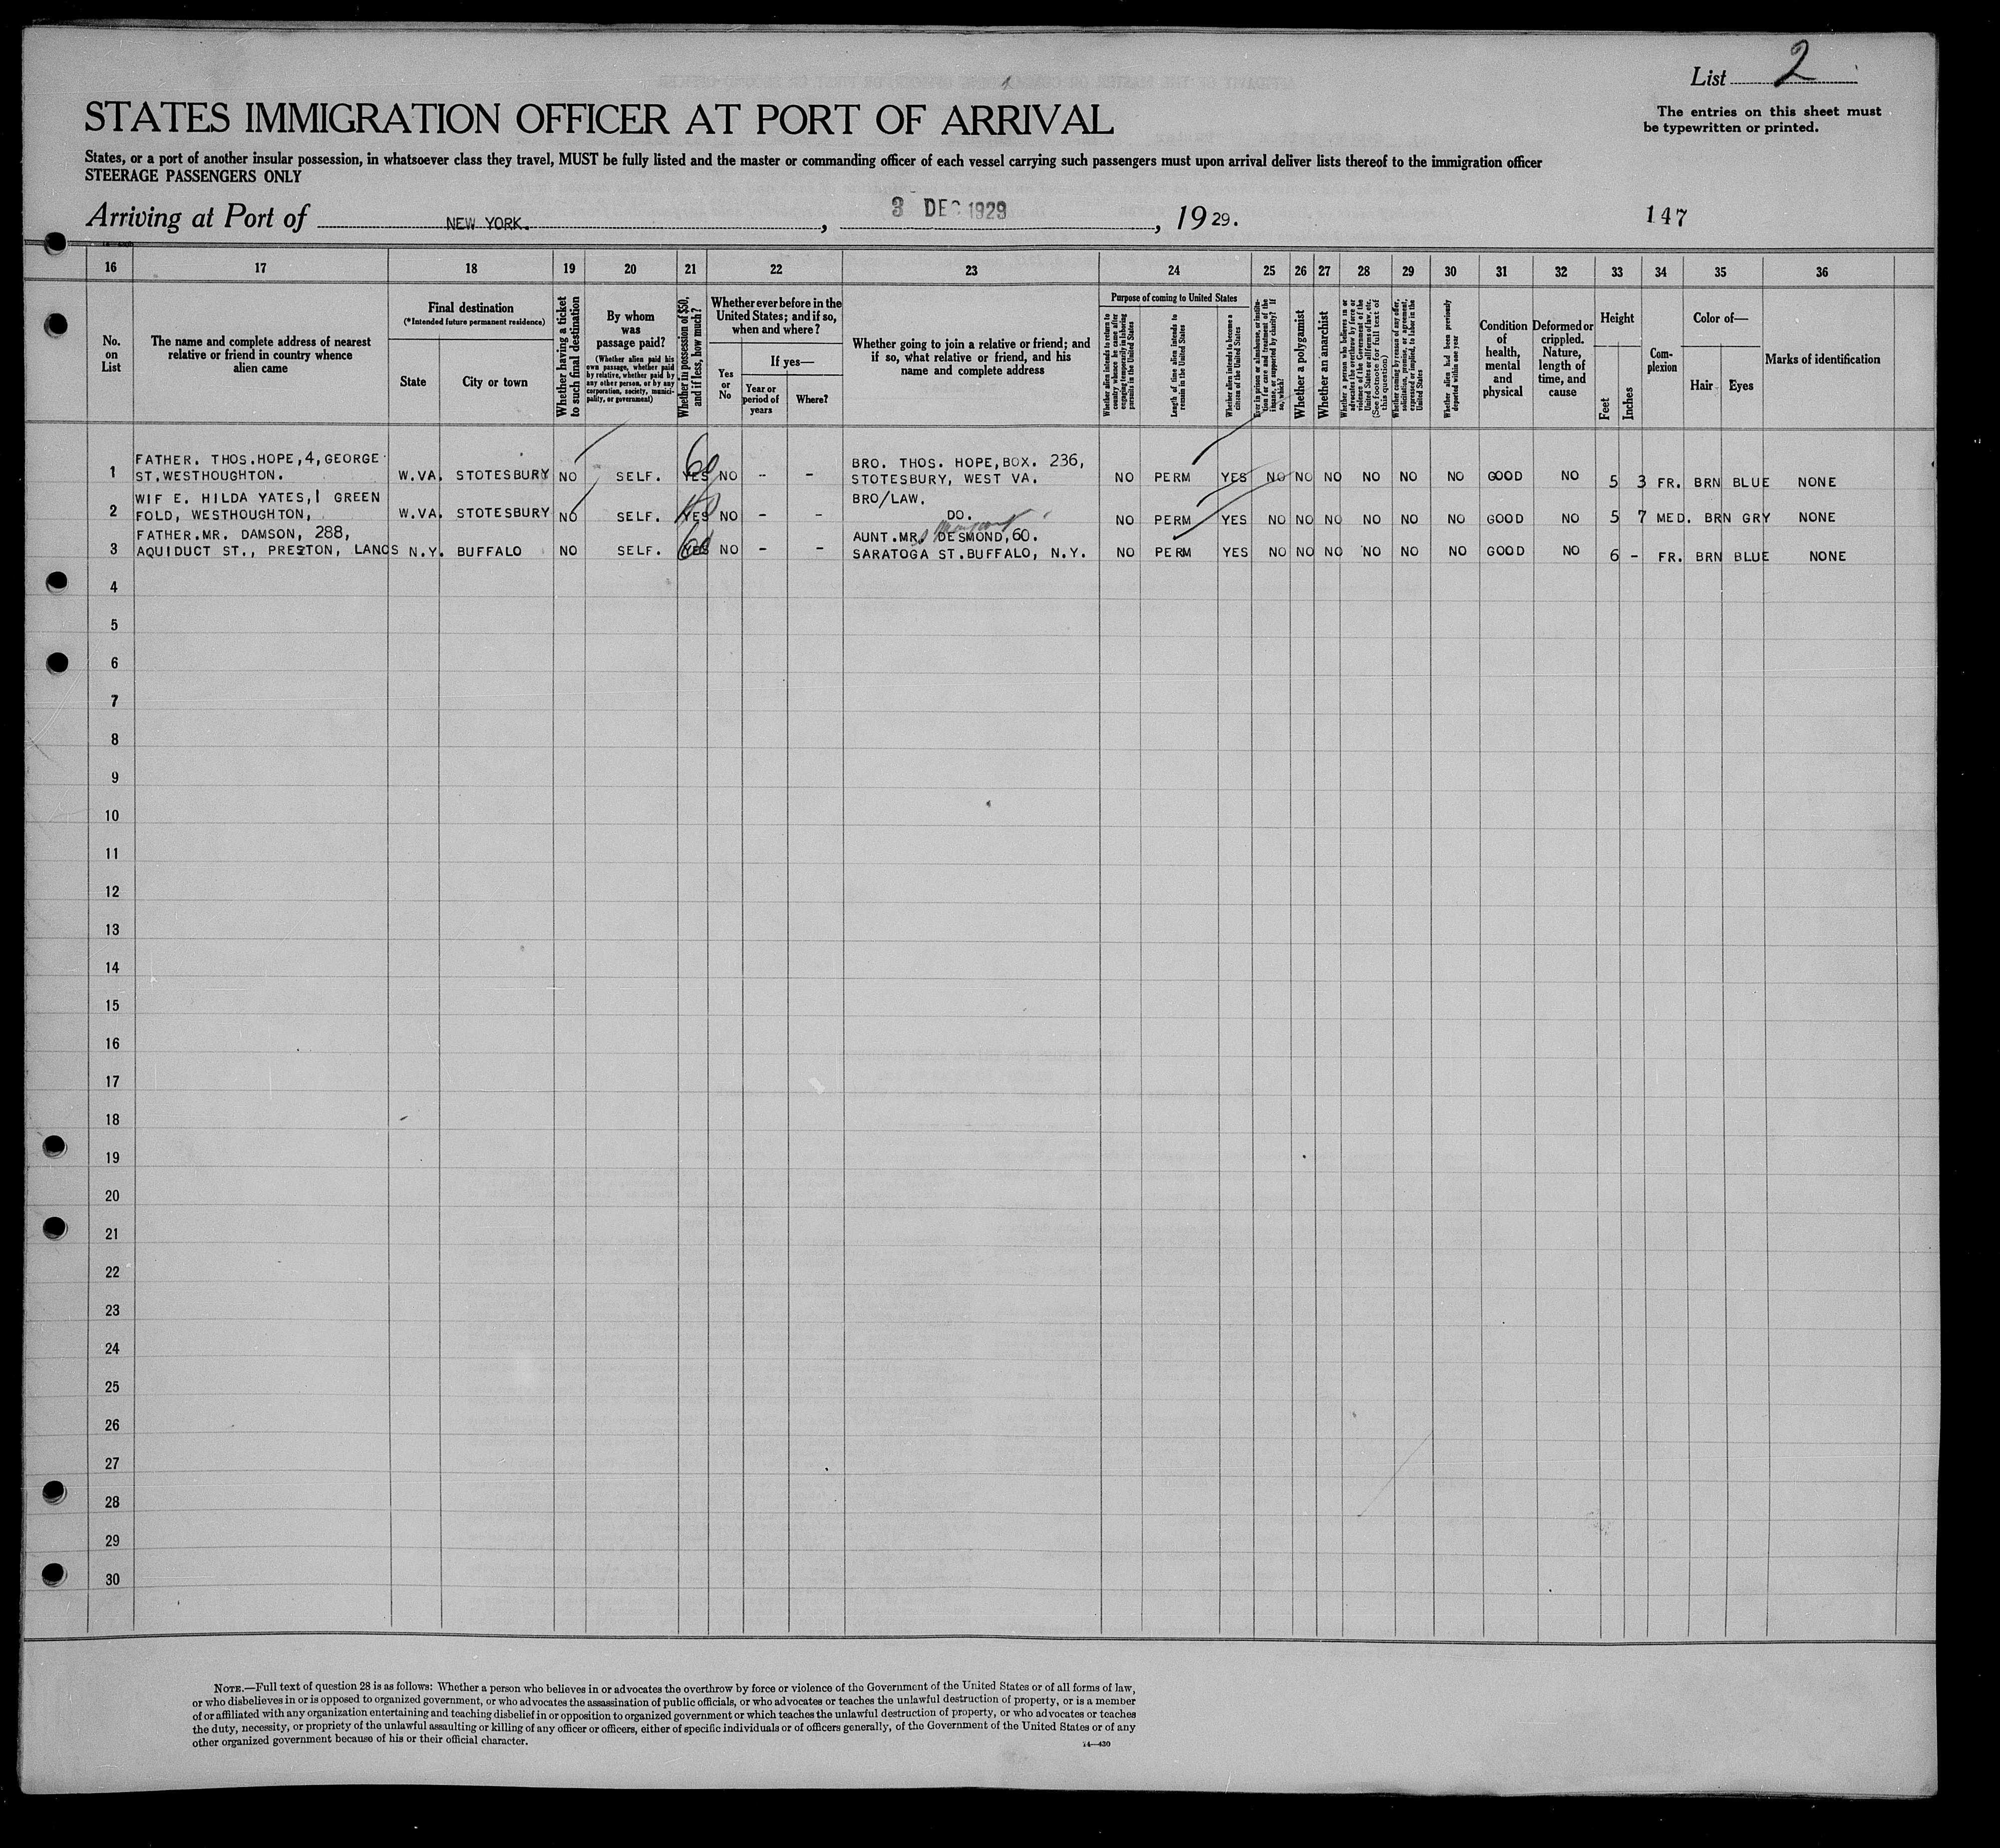 List 2
The entries on this sheet must
be typewritten or printed.
STATES IMMIGRATION OFFICER AT PORT OF ARRIVAL
States, or a port of another insular possession, in whatsoever class they travel, MUST be fully listed and the master or commanding officer of each vessel carrying such passengers must upon arrival deliver lists thereof to the immigration officer
STEERAGE PASSENGERS ONLY
Arriving at Port of NEW YORK. , 3 DEC 1929 , 19 29. 147
16 17 18 19 20 21 22 23 24 25 26 27 28 29 30 31 32 33 34 35 36
No. on List
The name and complete address of nearest relative or friend in country whence alien came
Final destination
(*Intended future permanent residence)
State
City or town
Whether having a ticket to such final destination
By whom was passage paid?
(Whether alien paid his own passage, whether paid by relative, whether paid by any other person, or by any corporation, society, municipality, or government)
Whether in possession of $50, and if less, how much?
Whether ever before in the United States; and if so, when and where?
Yes or No
If yes—
Year or period of years
Where?
Whether going to join a relative or friend; and if so, what relative or friend, and his name and complete address
Purpose of coming to United States
Whether alien intends to return to country whence he came after engaging temporarily in laboring pursuits in the United States
Length of time alien intends to remain in the United States
Whether alien intends to become a citizen of the United States
Ever in prison or almshouse, or institution for care and treatment of the insane, or supported by charity? If so, which?
Whether a polygamist
Whether an anarchist
Whether a person who believes in or advocates the overthrow by force or violence of the Government of the United States or all forms of law, etc. (See footnote for full text of this question)
Whether coming by reason of any offer, solicitation, promise, or agreement, expressed or implied, to labor in the United States
Whether alien had been previously deported within one year
Condition of health, mental and physical
Deformed or crippled. Nature, length of time, and cause
Height
Feet
Inches
Complexion
Color of—
Hair
Eyes
Marks of identification
FATHER. THOS.HOPE,4,GEORGE
1 ST.WESTHOUGHTON. W.VA. STOTESBURY NO SELF. YES 60 NO - - BRO. THOS. HOPE,BOX. 236,
STOTESBURY, WEST VA. NO PERM YES NO NO NO NO NO NO GOOD NO 5 3 FR. BRN BLUE NONE
WIF E. HILDA YATES,1 GREEN
2 FOLD, WESTHOUGHTON, W.VA. STOTESBURY NO SELF. YES NO - - BRO/LAW.
DO. NO PERM YES NO NO NO NO NO NO GOOD NO 5 7 MED. BRN GRY NONE
FATHER.MR. DAMSON, 288,
3 AQUIDUCT ST., PRESTON, LANCS N.Y. BUFFALO NO SELF. YES 60 NO - - AUNT.MRS DESMOND,60.
SARATOGA ST.BUFFALO, N.Y. NO PERM YES NO NO NO NO NO NO GOOD NO 6 - FR. BRN BLUE NONE
4
5
6
7
8
9
10
11
12
13
14
15
16
17
18
19
20
21
22
23
24
25
26
27
28
29
30
NOTE.—Full text of question 28 is as follows: Whether a person who believes in or advocates the overthrow by force or violence of the Government of the United States or of all forms of law,
or who disbelieves in or is opposed to organized government, or who advocates the assassination of public officials, or who advocates or teaches the unlawful destruction of property, or is a member
of or affiliated with any organization entertaining and teaching disbelief in or opposition to organized government or which teaches the unlawful destruction of property, or who advocates or teaches
the duty, necessity, or propriety of the unlawful assaulting or killing of any officer or officers, either of specific individuals or of officers generally, of the Government of the United States or of any
other organized government because of his or their official character.
14—430